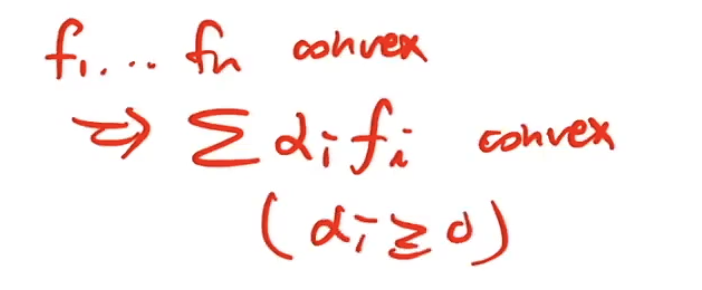 f₁... fₙ convex
⇒ Σ αᵢ fᵢ convex
(αᵢ ≥ 0)